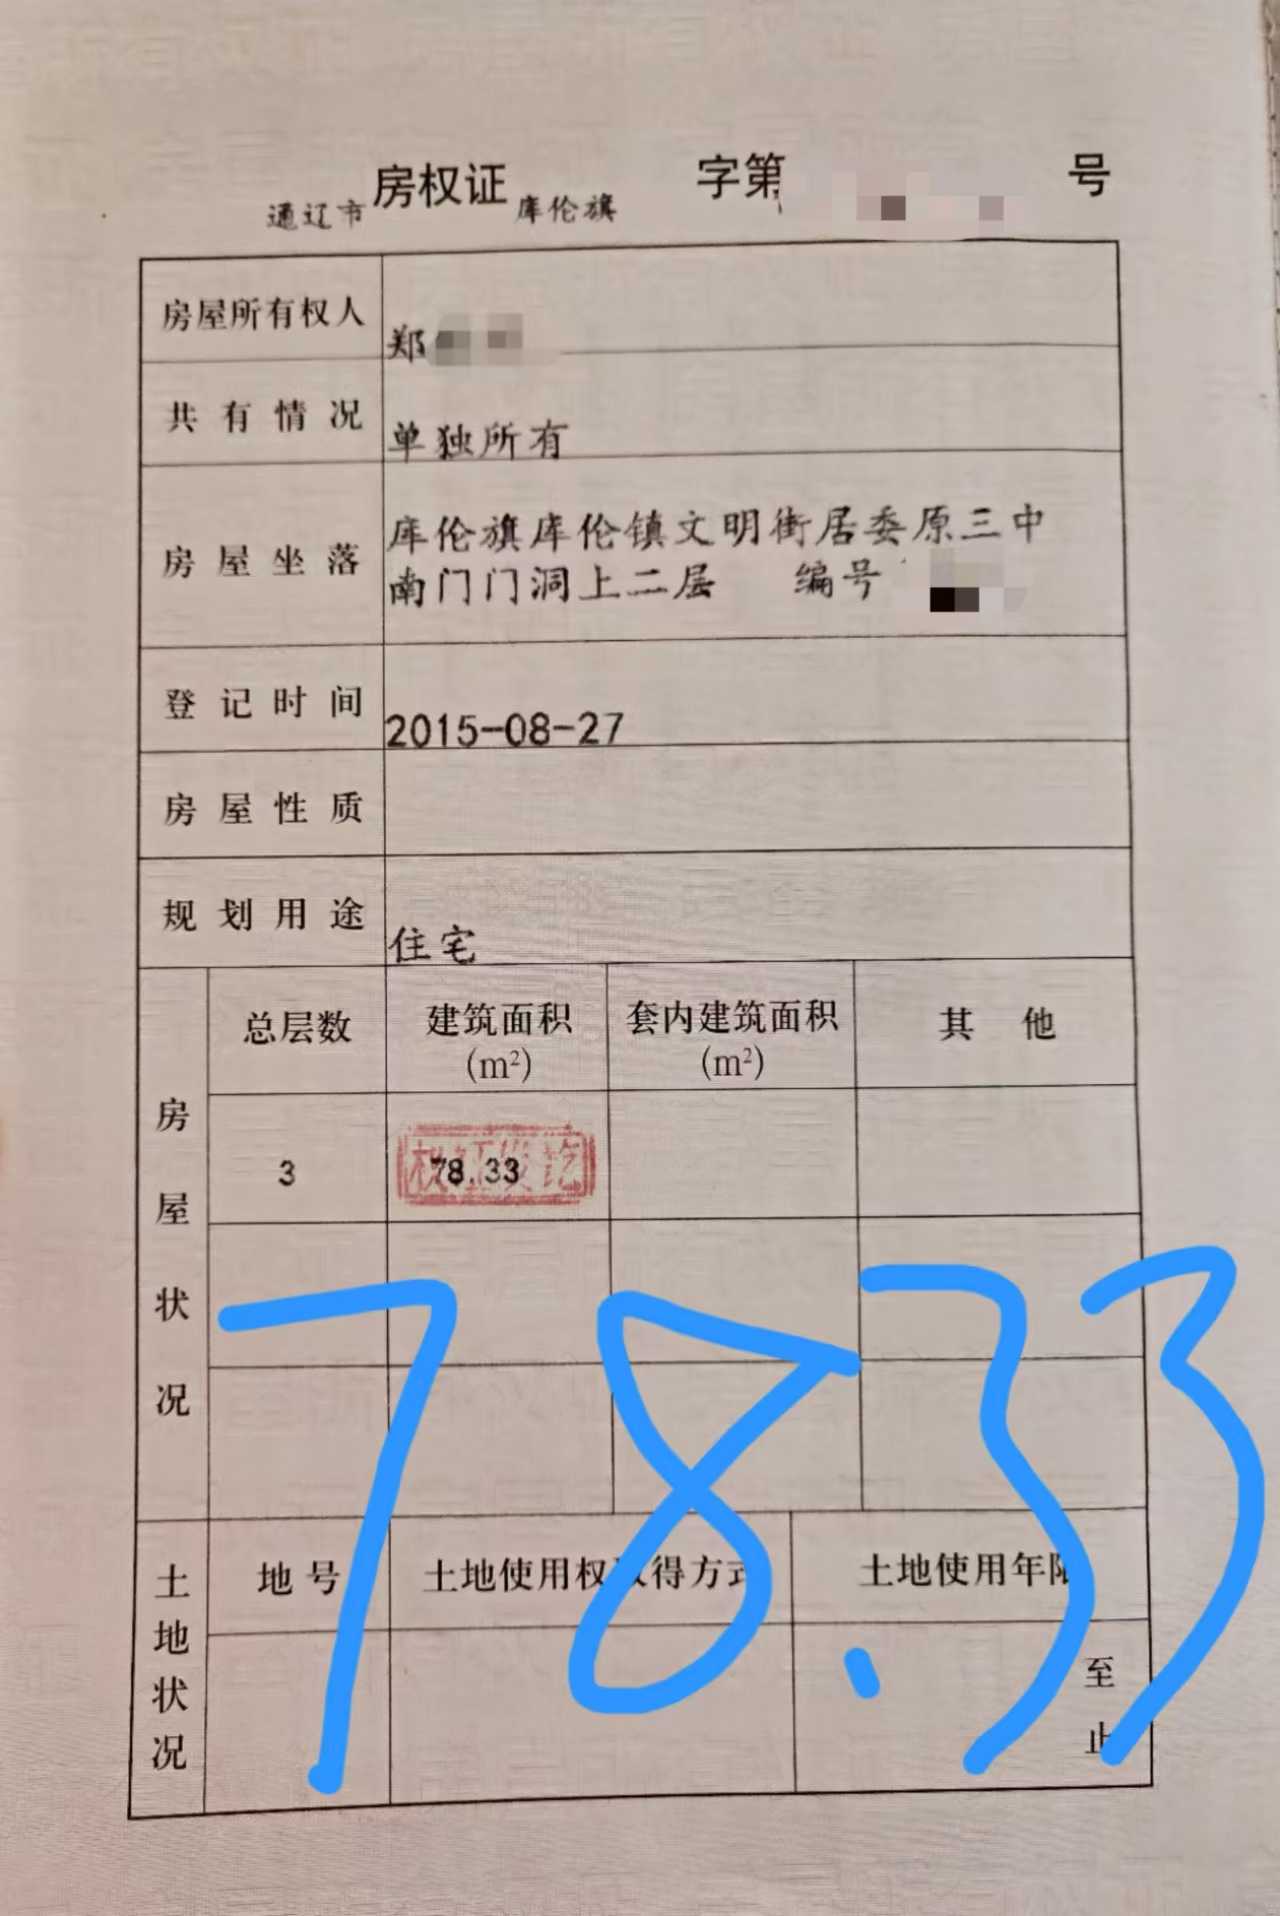 通辽市房权证库伦旗字第 号
房屋所有权人 郑
共有情况 单独所有
房屋坐落 库伦旗库伦镇文明街居委原三中
南门门洞上二层 编号
登记时间 2015-08-27
房屋性质
规划用途 住宅
房屋状况
总层数 建筑面积 套内建筑面积 其他
(m²) (m²)
3 78.33
权证发讫
78.33
土地状况
地号 土地使用权取得方式 土地使用年限
至
止